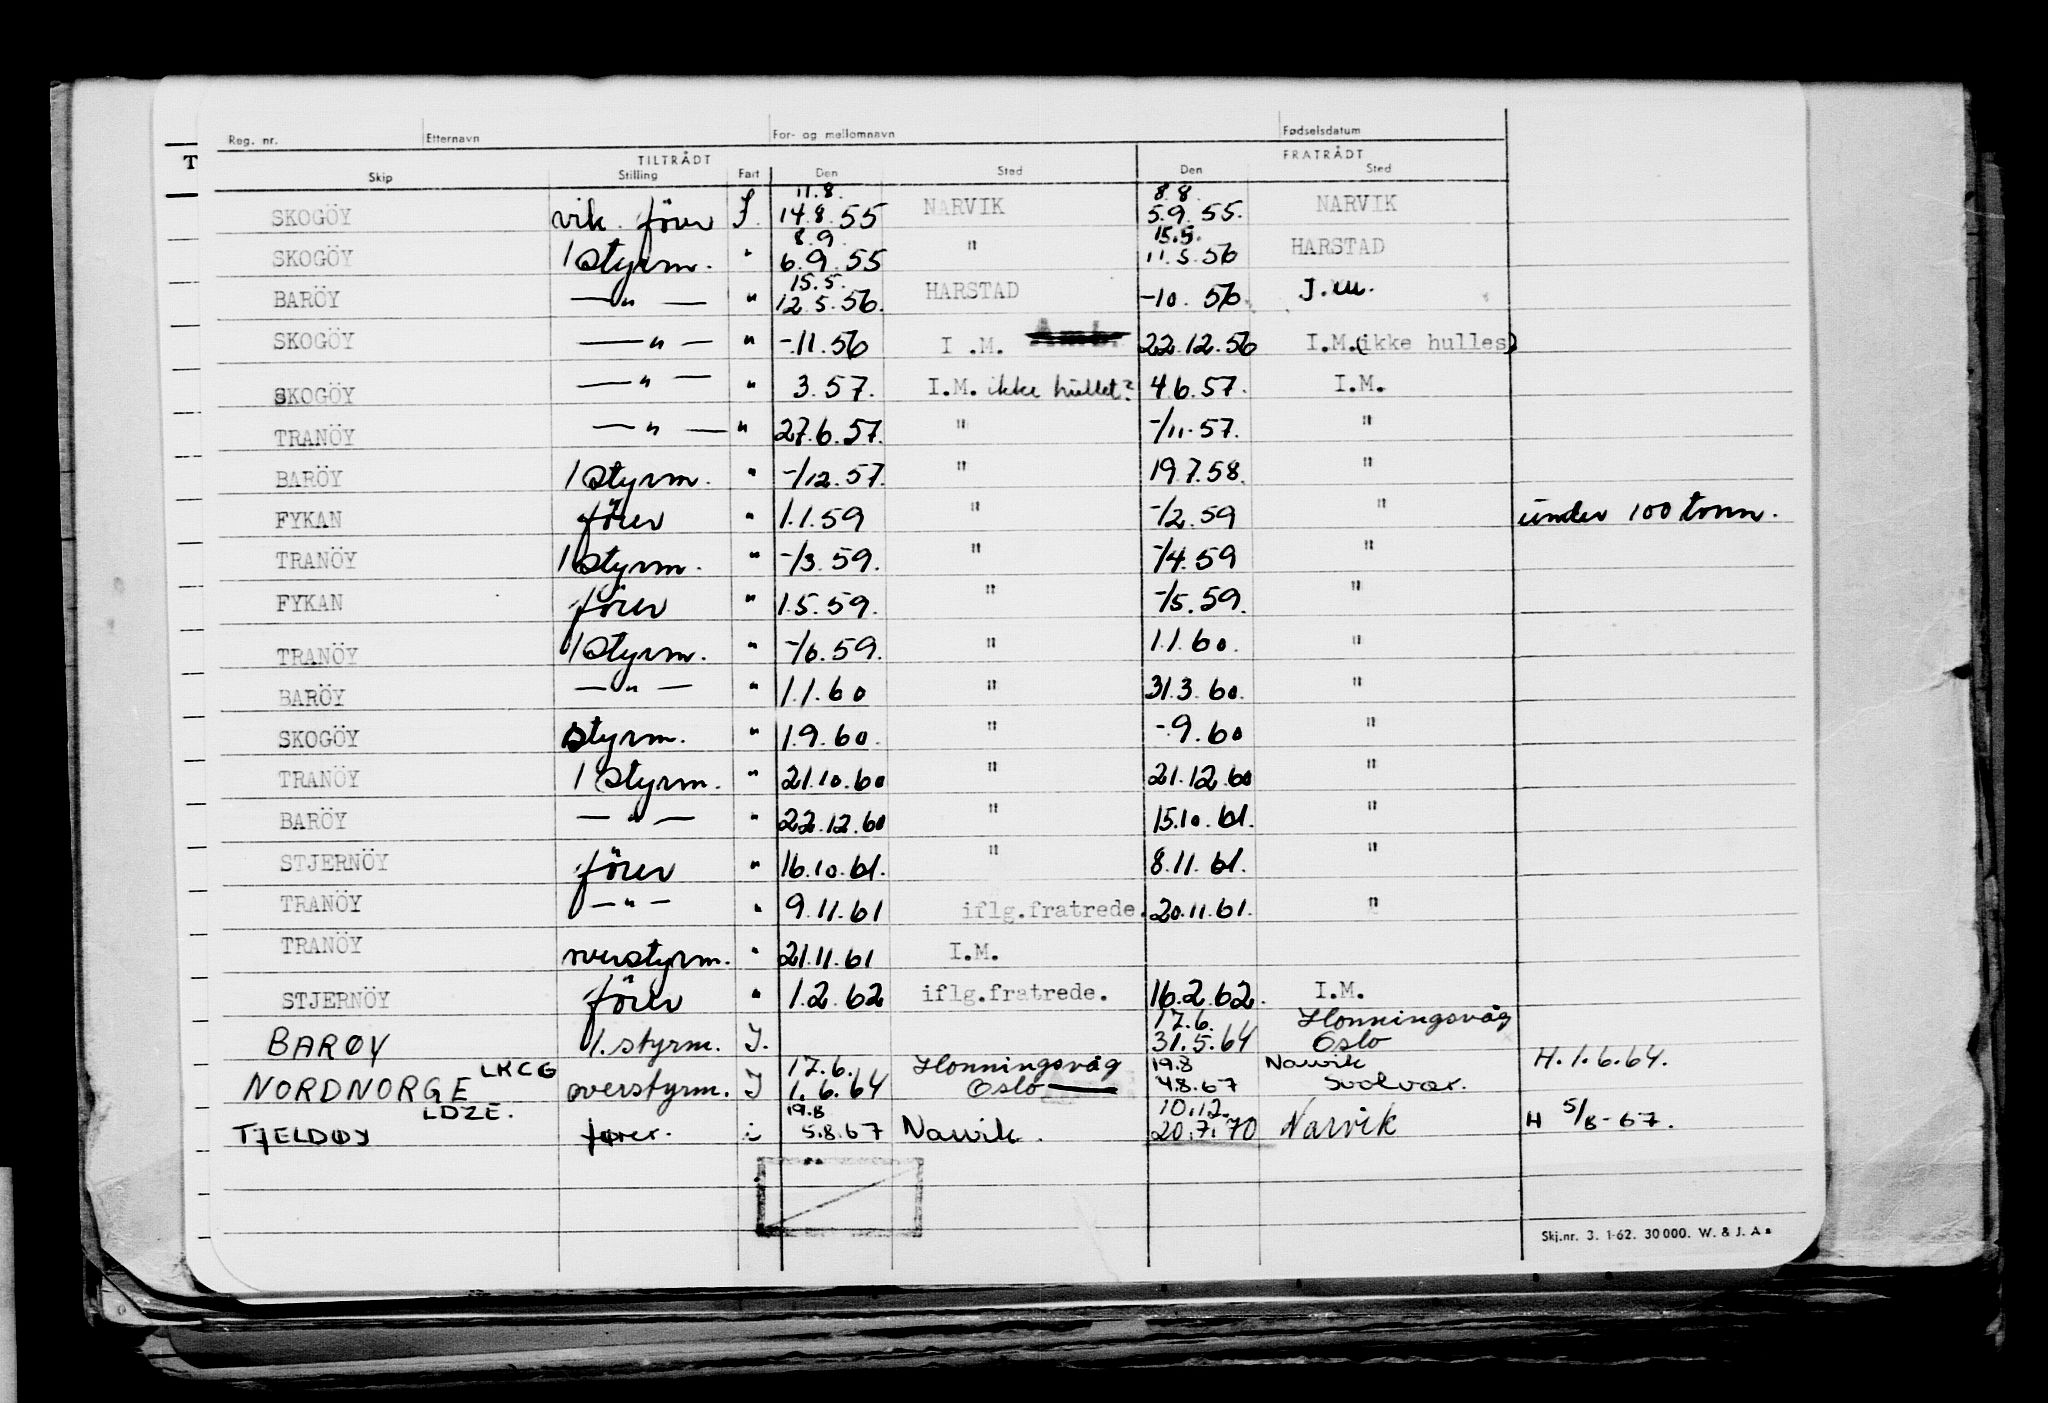 Reg. nr. Etternavn For- og mellomnavn Fødselsdatum
T
TILTRÅDT FRATRÅDT
Skip Stilling Fart Den Sted Den Sted
11.8. 8.8.
SKOGÖY vik. förer I. 14.8.55 NARVIK 5.9.55. NARVIK
8.9. 15.5.
SKOGÖY 1 styrm. " 6.9.55 " 11.5.56 HARSTAD
15.5.
BARÖY — " — " 12.5.56. HARSTAD -10.56. I.M.
SKOGÖY — " — " -.11.56 I.M. 22.12.56 I.M.(ikke hulles)
SKOGÖY — " — " 3.57. I.M. ikke hullet? 4.6.57. I.M.
TRANÖY — " — " 27.6.57. " -/11.57. "
BARÖY 1 styrm. " -/12.57. " 19.7.58. "
FYKAN förer " 1.1.59 " -/2.59 " under 100 tonn.
TRANÖY 1 styrm. " -/3.59. " -/4.59 "
FYKAN förer " 1.5.59. " -/5.59. "
TRANÖY 1 styrm. " -/6.59. " 1.1.60. "
BARÖY — " — " 1.1.60 " 31.3.60. "
SKOGÖY styrm. " 1.9.60. " -.9.60 "
TRANÖY 1 styrm. " 21.10.60 " 21.12.60 "
BARÖY — " — " 22.12.60 " 15.10.61. "
STJERNÖY förer " 16.10.61. " 8.11.61. "
TRANÖY — " — " 9.11.61 iflg.fratrede. 20.11.61. "
TRANÖY overstyrm. " 21.11.61 I.M.
STJERNÖY förer " 1.2.62 iflg.fratrede. 16.2.62. I.M.
17.6. Honningsvåg
BARØY 1. styrm. I. 31.5.64 Oslo
LKCG 17.6. Honningsvåg 19.8 Narvik H. 1.6.64.
NORDNORGE overstyrm. I 1.6.64 Oslo 4.8.67 Svolvær.
LDZE. 19.8 10.12.
TJELDØY fører. i 5.8.67 Narvik. 20.7.70 Narvik H 5/8-67.
Skj.nr. 3. 1-62. 30000. W. & J. A s